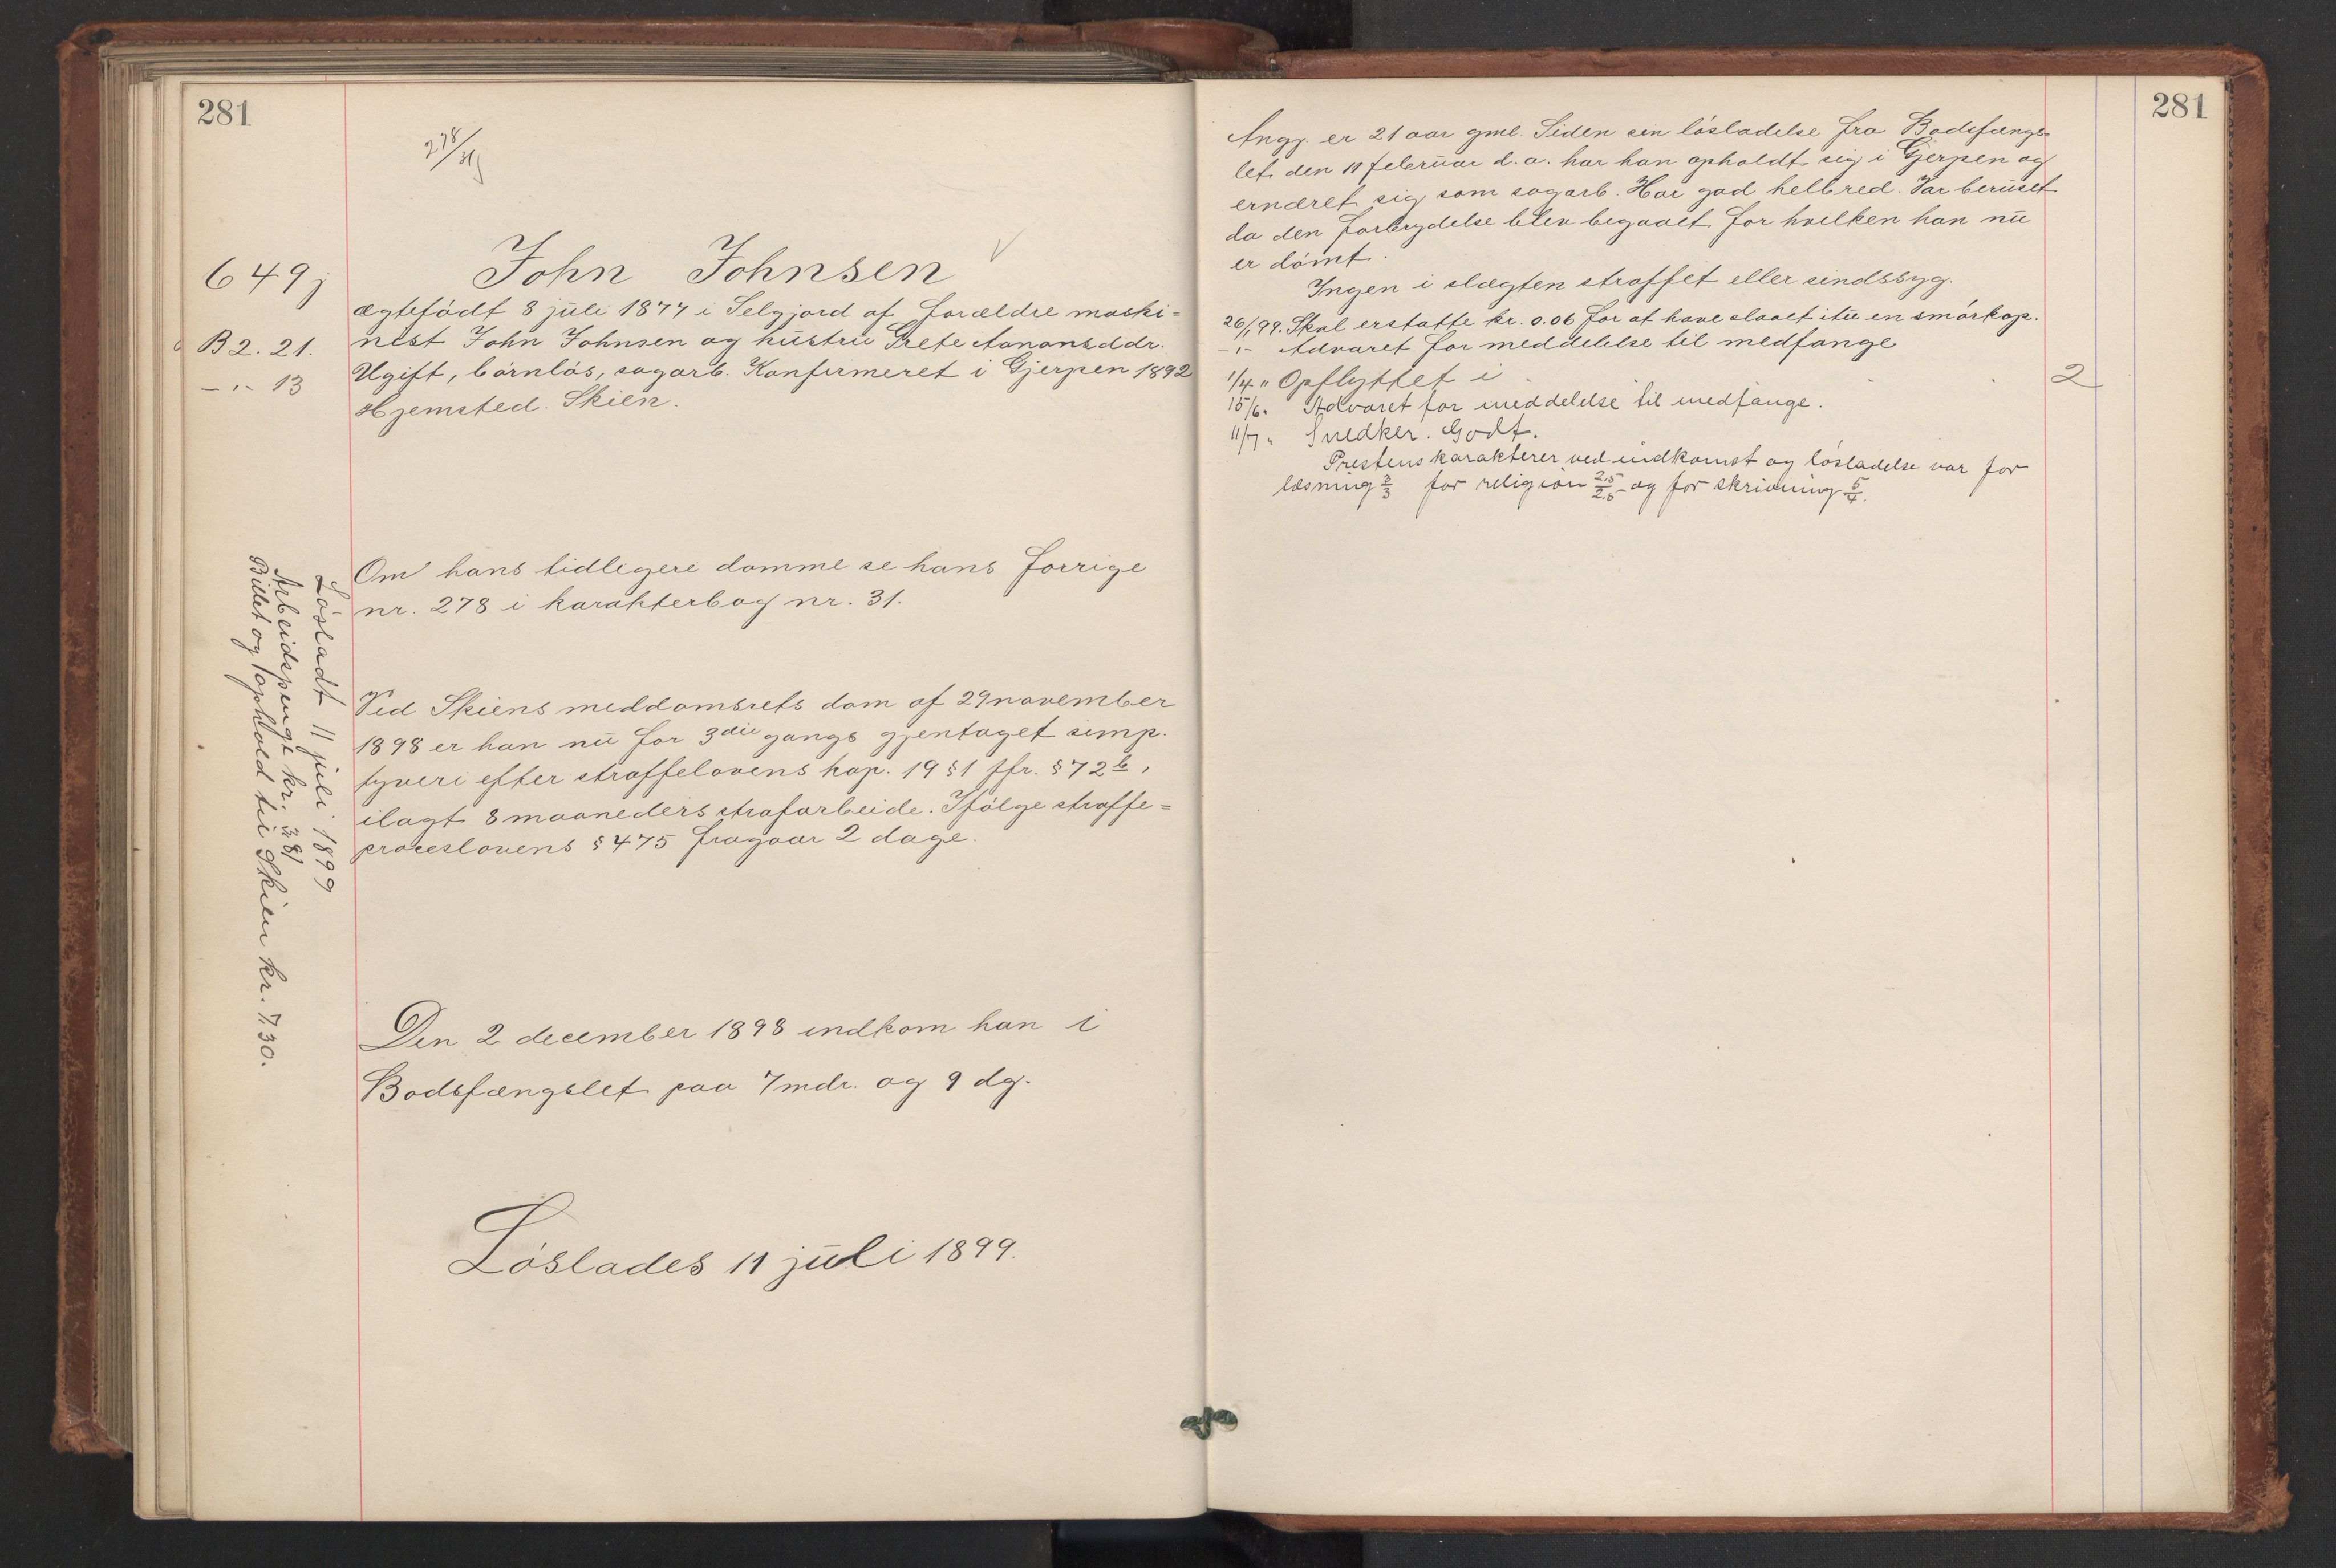 281
278/31j
649j
John Johnsen
ægtefödt 8 juli 1877 i Selgjord af forældre maski=
B 2. 21.
nist John Johnsen og hustru Grete Aanonsddr.
— " - 13
Ugift, börnlös, sagarb. Konfirmeret i Gjerpen 1892
Hjemsted. Skien.
Om hans tidligere domme se hans forrige
nr. 278 i karakterbog nr. 31.
Ved Skiens meddomsrets dom af 29 november
1898 er han nu for 3die gangs gjentaget simp.
tyveri efter straffelovens kap. 19 § 1 jfr. § 72 b,
ilagt 8 maaneders strafarbeide. Ifölge straffe=
proceslovens § 475 fragaar 2 dage.
Den 2 december 1898 indkom han i
Bodsfængslet paa 7 mdr. og 9 dg.
Löslades 11 juli 1899.
Lösladt 11 juli 1899
Arbeidspenge kr. 3.81
Billet og ophold til Skien kr. 7.30.
281
Angj. er 21 aar gml. Siden sin lösladelse fra Bodsfængs=
let den 11 februar d.a. har han opholdt sig i Gjerpen og
ernæret sig som sagarb. Har god helbred. Var beruset
da den forbrydelse blev begaaet for hvilken han nu
er dömt.
Ingen i slægten straffet eller sindssyg.
26/1 99. Skal erstatte kr. 0.06 for at have slaaet itu en smörkop.
- " - Advaret for meddelelse til medfange
1/4 " Opflyttet i 2
15/6 " Advaret for meddelelse til medfange.
11/7 " Snedker. Godt.
Prestens karakterer ved indkomst og lösladelse var for
læsning 3/3 for religion 2.5/2.5 og for skrivning 5/4.